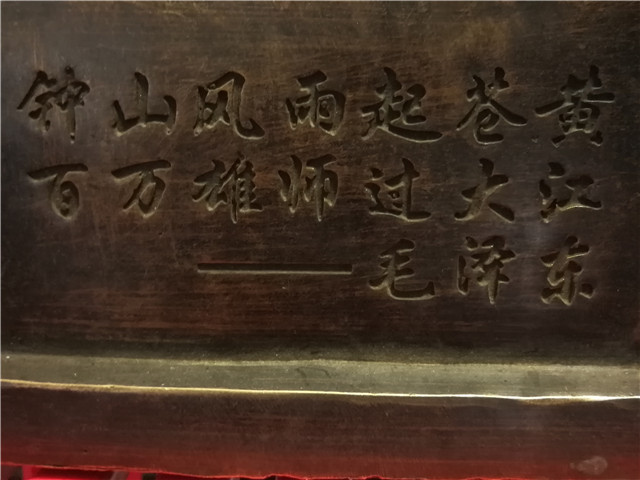 钟山风雨起苍黄
百万雄师过大江
——毛泽东